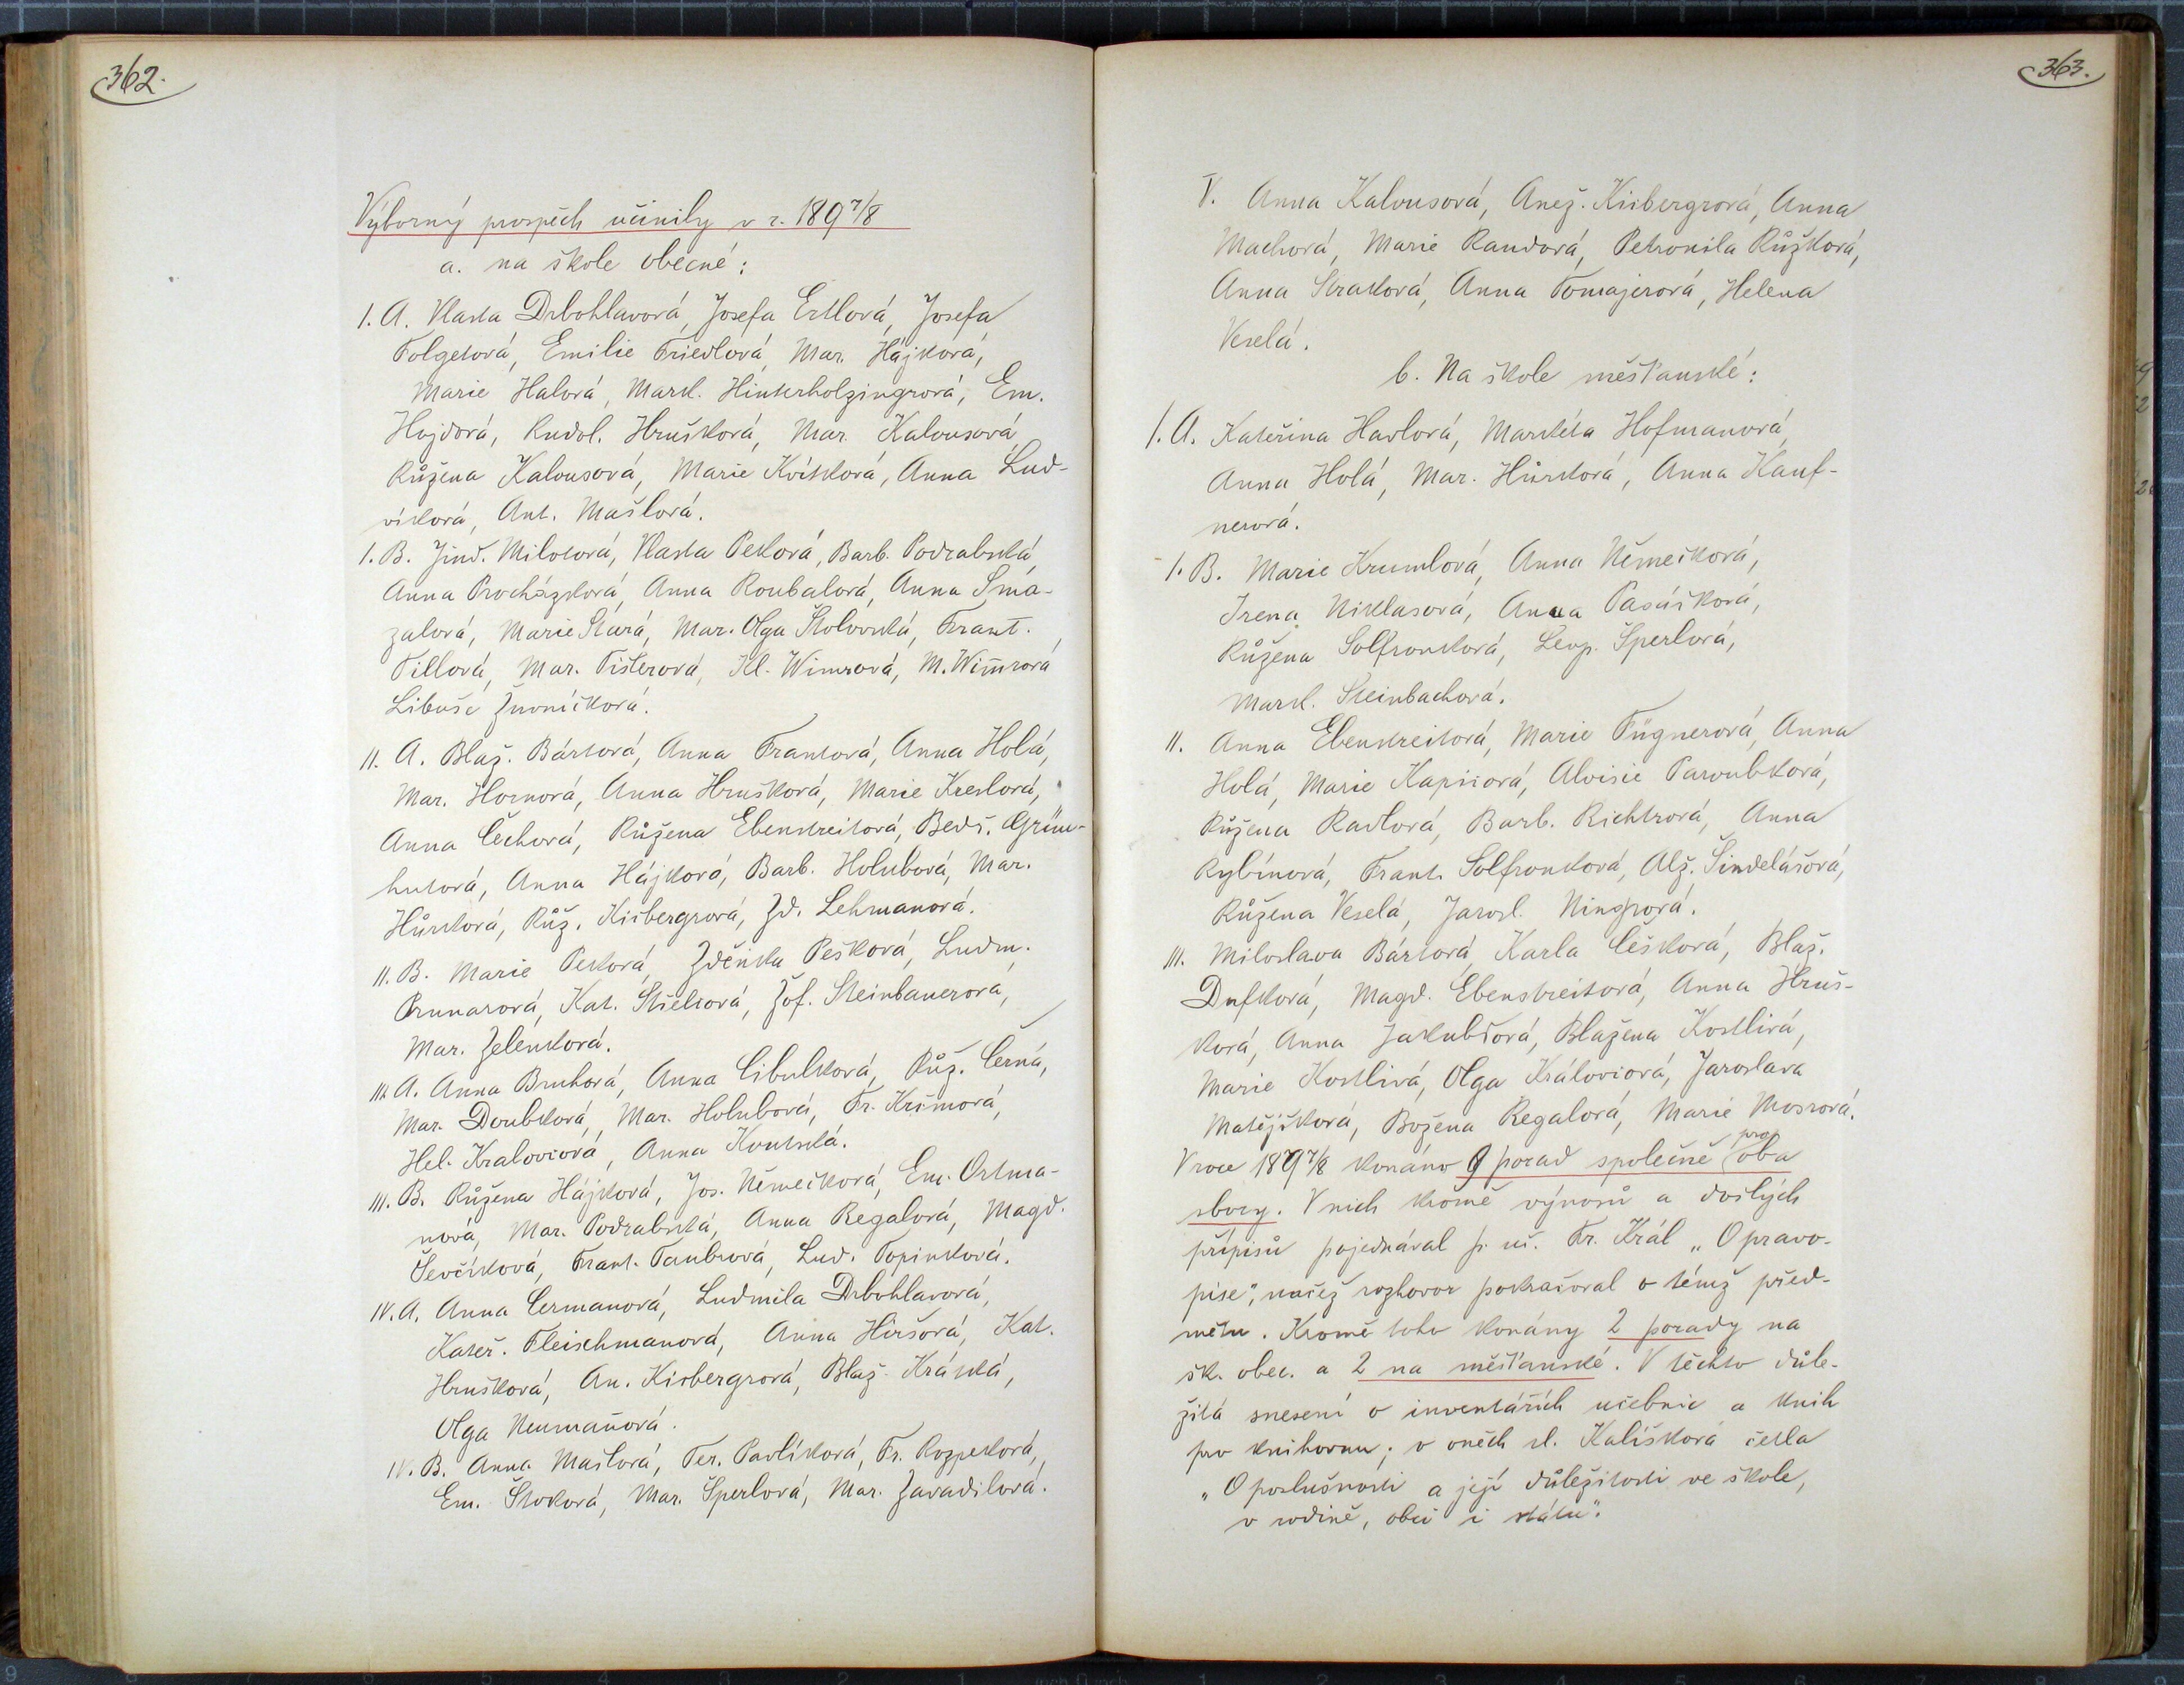 362.
Výborný prospěch učinily v r. 1897/8
a. na škole obecné:
I. A. Vlasta Drbohlavová, Josefa Ertlová, Josefa
Folgetová, Emilie Friedlová, Mar. Hájková,
Marie Halová, Mark. Hinterholzingrová, Em.
Hojdová, Rudol. Hrušková, Mar. Kalousová,
Růžena Kalousová, Marie Kvítková, Anna Lud-
víková, Ant. Mašlová.
I. B. Jind. Milotová, Vlasta Peková, Barb. Podrabská,
Anna Procházková, Anna Roubalová, Anna Sma-
zalová, Marie Stará, Mar. Olga Štolovská, Frant.
Tillová, Mar. Tišlerová, Kl. Wimrová, M. Wimrová
Libuše Zvoníčková.
II. A. Blaž. Bártová, Anna Frantová, Anna Holá,
Mar. Hornová, Anna Hrušková, Marie Kreslová,
Anna Čechová, Růžena Ebenstreitová, Bedř. Grün-
hutová, Anna Hájková, Barb. Holubová, Mar.
Hůrková, Růž. Kisbergrová, Zd. Lehmanová.
II. B. Marie Peková, Zdeňka Pešková, Ludm.
Prunarová, Kat. Střelcová, Žof. Steinbauerová,
Mar. Zelenková.
III. A. Anna Bruhová, Anna Cibulková, Růž. Černá,
Mar. Doubková, Mar. Holubová, Fr. Kršmová,
Hel. Kralovcová, Anna Koutská.
III. B. Růžena Hájková, Jos. Němečková, Em. Ortma-
nová, Mar. Podrabská, Anna Regalová, Magd.
Ševčíková, Frant. Taubrová, Lud. Topinková.
IV. A. Anna Čermanová, Ludmila Drbohlavová,
Kateř. Fleischmanová, Anna Hiršová, Kat.
Hrušková, An. Kisbergrová, Blaž. Krátká,
Olga Neumanová.
IV. B. Anna Mašlová, Ter. Pavlíková, Fr. Rozpeková,
Em. Štoková, Mar. Šperlová, Mar. Zavadilová.
363.
V. Anna Kalousová, Anež. Kisbergrová, Anna
Machová, Marie Randová, Petronila Růžková,
Anna Straková, Anna Tomajerová, Helena
Veselá.
b. Na škole měšťanské:
I. A. Kateřina Havlová, Markéta Hofmanová,
Anna Holá, Mar. Hůrková, Anna Kauf-
nerová.
I. B. Marie Krumlová, Anna Němečková,
Irena Niklasová, Anna Pasáčková,
Růžena Solfronková, Leop. Šperlová,
Mark. Steinbachová.
II. Anna Ebenstreitová, Marie Fügnerová, Anna
Holá, Marie Kapicová, Aloisie Paroubková,
Růžena Radlová, Barb. Richtrová, Anna
Rybínová, Frant. Solfronková, Alž. Šindelářová,
Růžena Veselá, Jarosl. Wingrová.
III. Miloslava Bártová, Karla Češková, Blaž.
Dufková, Magd. Ebenstreitová, Anna Hruš-
ková, Anna Jakubcová, Blažena Kostlivá,
Marie Kostlivá, Olga Královcová, Jaroslava
Matějčková, Božena Regalová, Marie Mosrová.
V roce 1897/8 konáno 9 porad společně pro oba
sbory. V nich kromě výnosů a došlých
přípisů pojednával p. uč. Fr. Král „O pravo-
pise", načež rozhovor pokračoval o témž před-
mětu. Kromě toho konány 2 porady na
šk. obec. a 2 na měšťanské. V těchto důle-
žitá snesení o inventářích učebnic a knih
pro knihovnu; v oněch sl. Kalíšková četla
„O poslušnosti a její důležitosti ve škole,
v rodině, obci i státu".